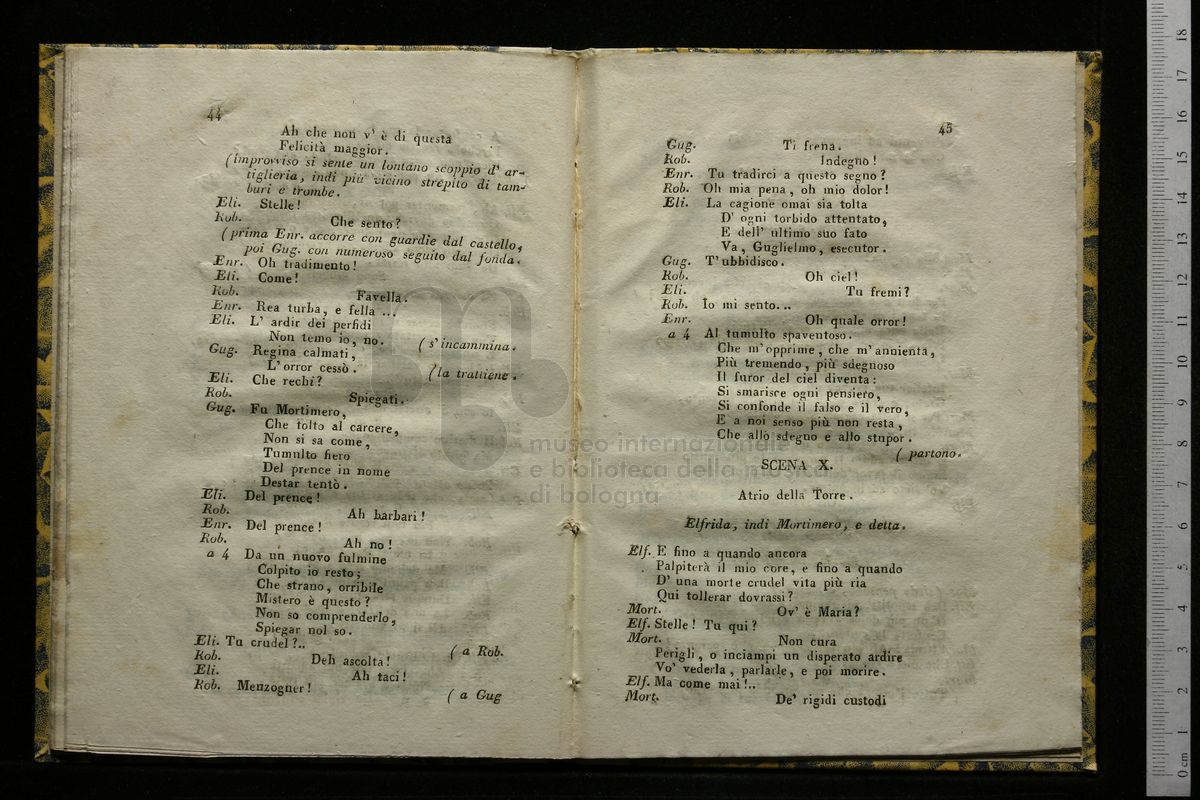 44
Ah che non v' è di questa
Felicità maggior.
(improvviso si sente un lontano scoppio d' ar-
tiglieria, indi più vicino strepito di tam-
buri e trombe.
Eli. Stelle!
Rob. Che sento?
(prima Enr. accorre con guardie dal castello,
poi Gug. con numeroso seguito dal fonda.
Enr. Oh tradimento!
Eli. Come!
Rob. Favella.
Enr. Rea turba, e fella ...
Eli. L' ardir dei perfidi
Non temo io, no. (s' incammina.
Gug. Regina calmati,
L' orror cessò. (la trattiene.
Eli. Che rechi?
Rob. Spiegati.
Gug. Fu Mortimero,
Che tolto al carcere,
Non si sa come,
Tumulto fiero
Del prence in nome
Destar tentò.
Eli. Del prence!
Rob. Ah barbari!
Enr. Del prence!
Rob. Ah no!
a 4 Da un nuovo fulmine
Colpito io resto;
Che strano, orribile
Mistero è questo?
Non so comprenderlo,
Spiegar nol so.
Eli. Tu crudel?.. (a Rob.
Rob. Deh ascolta!
Eli. Ah taci!
Rob. Menzogner! (a Gug
45
Gug. Ti frena.
Rob. Indegno!
Enr. Tu tradirci a questo segno?
Rob. Oh mia pena, oh mio dolor!
Eli. La cagione omai sia tolta
D' ogni torbido attentato,
E dell' ultimo suo fato
Va, Guglielmo, esecutor.
Gug. T' ubbidisco.
Rob. Oh ciel!
Eli. Tu fremi?
Rob. Io mi sento...
Enr. Oh quale orror!
a 4 Al tumulto spaventoso.
Che m' opprime, che m' annienta,
Più tremendo, più sdegnoso
Il furor del ciel diventa:
Si smarisce ogni pensiero,
Si confonde il falso e il vero,
E a noi senso più non resta,
Che allo sdegno e allo stupor.
(partono.
SCENA X.
Atrio della Torre.
Elfrida, indi Mortimero, e detta.
Elf. E fino a quando ancora
Palpiterà il mio core, e fino a quando
D' una morte crudel vita più ria
Qui tollerar dovrassi?
Mort. Ov' è Maria?
Elf. Stelle! Tu qui?
Mort. Non cura
Perigli, o inciampi un disperato ardire
Vo' vederla, parlarle, e poi morire.
Elf. Ma come mai!..
Mort. De' rigidi custodi
museo internazionale
e biblioteca della musica
di bologna
0 cm 1 2 3 4 5 6 7 8 9 10 11 12 13 14 15 16 17 18